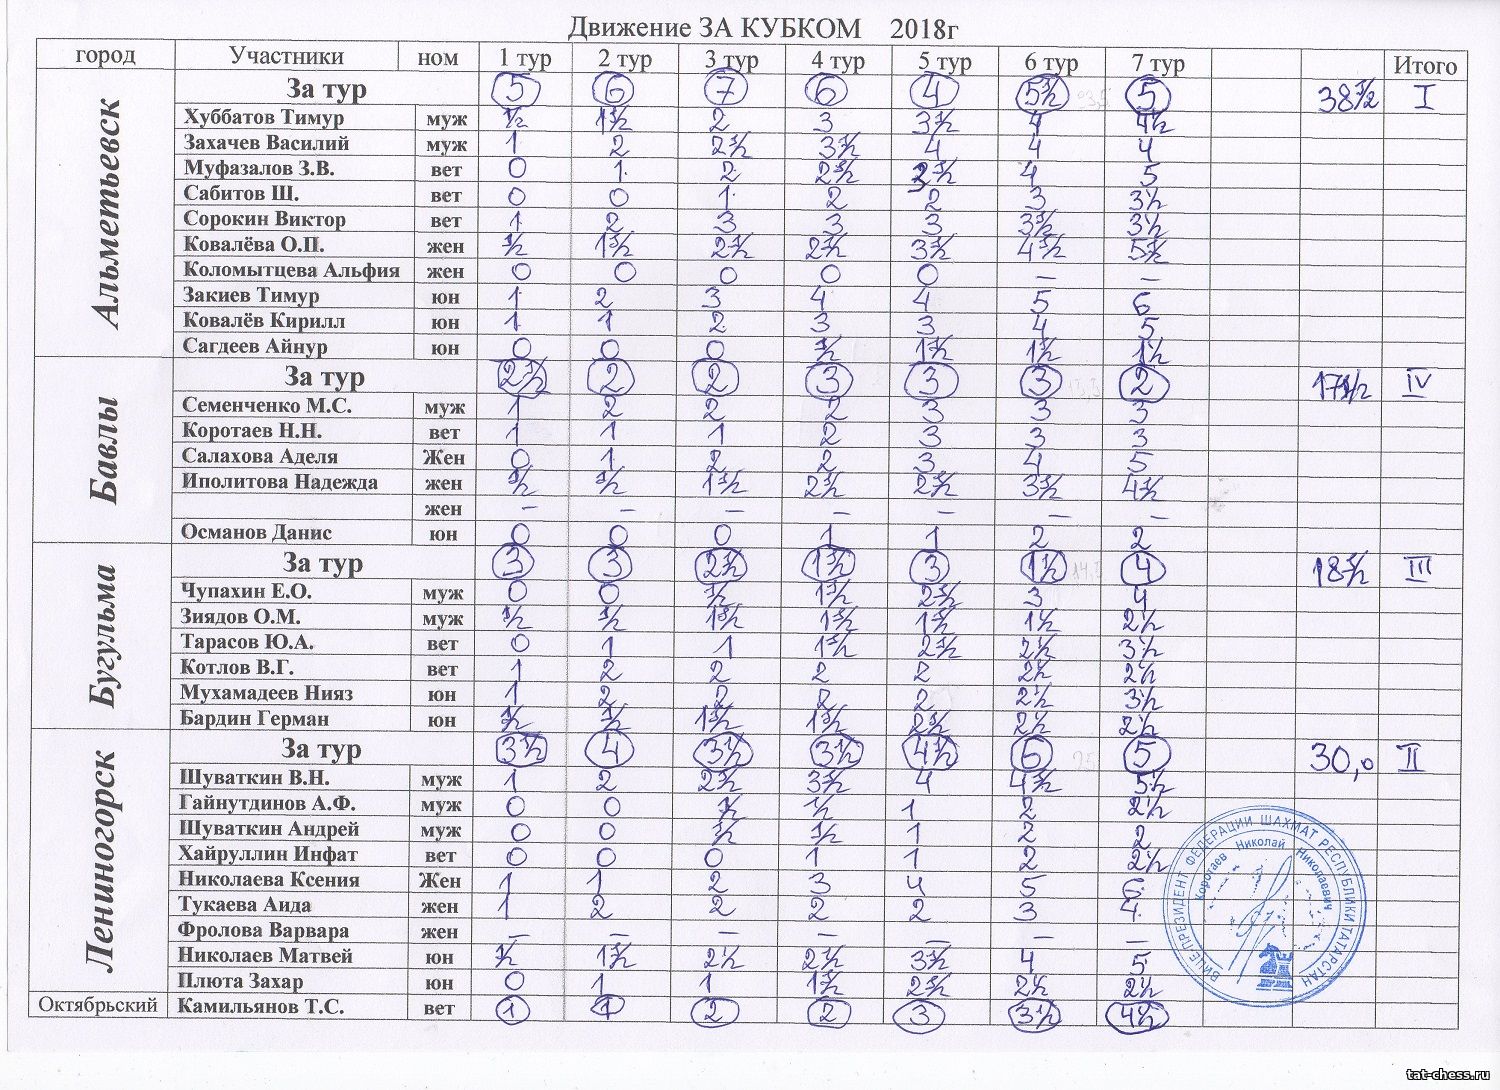 Движение ЗА КУБКОМ 2018г
город Участники ном 1 тур 2 тур 3 тур 4 тур 5 тур 6 тур 7 тур Итого
Альметьевск
За тур 5 6 7 6 4 5½ 5 38½ I
Хуббатов Тимур муж ½ 1½ 2 3 3½ 4 4½
Захачев Василий муж 1 2 2½ 3½ 4 4 4
Муфазалов З.В. вет 0 1 2 2½ 4 5
Сабитов Ш. вет 0 0 1 2 2 3 3½
Сорокин Виктор вет 1 2 3 3 3 3½ 3½
Ковалёва О.П. жен ½ 1½ 2½ 2½ 3½ 4½ 5½
Коломытцева Альфия жен 0 0 0 0 0 – –
Закиев Тимур юн 1 2 3 4 4 5 6
Ковалёв Кирилл юн 1 1 2 3 3 4 5
Сагдеев Айнур юн 0 0 0 ½ 1½ 1½ 1½
Бавлы
За тур 2½ 2 2 3 3 3 2 17½ IV
Семенченко М.С. муж 1 2 2 2 3 3 3
Коротаев Н.Н. вет 1 1 1 2 3 3 3
Салахова Аделя Жен 0 1 2 2 3 4 5
Иполитова Надежда жен ½ ½ 1½ 2½ 2½ 3½ 4½
жен – – – – – – –
Османов Данис юн 0 0 0 1 1 2 2
Бугульма
За тур 3 3 2½ 1½ 3 1½ 4 18½ III
Чупахин Е.О. муж 0 0 ½ 1½ 2½ 3 4
Зиядов О.М. муж ½ ½ 1½ 1½ 1½ 1½ 2½
Тарасов Ю.А. вет 0 1 1 1½ 2½ 2½ 3½
Котлов В.Г. вет 1 2 2 2 2 2½ 2½
Мухамадеев Нияз юн 1 2 2 2 2 2½ 3½
Бардин Герман юн ½ ½ 1½ 1½ 2½ 2½ 2½
Лениногорск
За тур 3½ 4 3½ 3½ 4½ 6 5 30,0 II
Шуваткин В.Н. муж 1 2 2½ 3½ 4 4½ 5½
Гайнутдинов А.Ф. муж 0 0 ½ ½ 1 2 2½
Шуваткин Андрей муж 0 0 ½ ½ 1 2 2
Хайруллин Инфат вет 0 0 0 1 1 2 2½
Николаева Ксения Жен 1 1 2 3 4 5 6
Тукаева Аида жен 1 2 2 2 2 3 4
Фролова Варвара жен – – – – – – –
Николаев Матвей юн ½ 1½ 2½ 2½ 3½ 4 5
Плюта Захар юн 0 1 1 1½ 2½ 2½ 2½
Октябрьский Камильянов Т.С. вет 1 1 2 2 3 3½ 4½
ВИЦЕ-ПРЕЗИДЕНТ ФЕДЕРАЦИИ ШАХМАТ РЕСПУБЛИКИ ТАТАРСТАН
Коротаев Николай Николаевич
tat-chess.ru